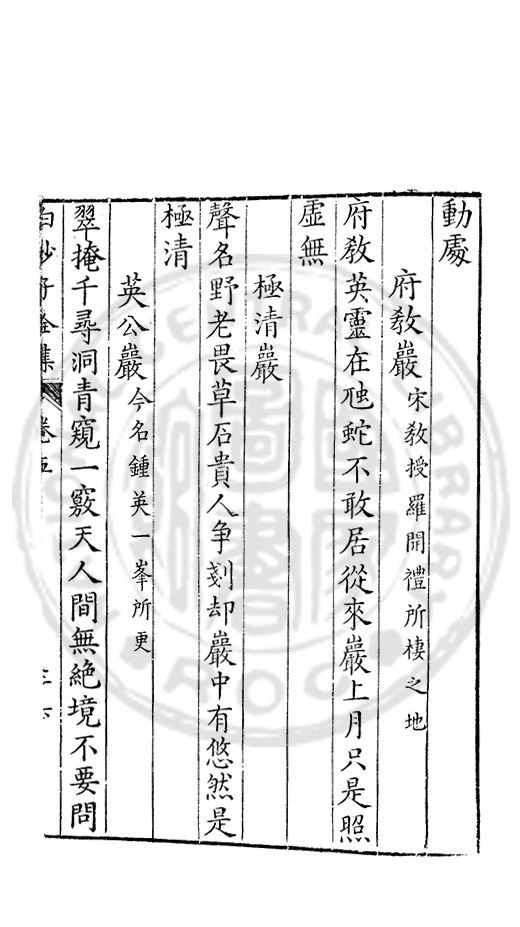 動處
府教巖宋教授羅開禮所棲之地
府教英靈在虺蛇不敢居從來巖上月只是照
虛無
極清巖
聲名野老畏草石貴人争刻却巖中有悠然是
極清
英公巖今名鍾英一峯所更
翠掩千尋洞青窺一竅天人間無絶境不要問
集 卷五